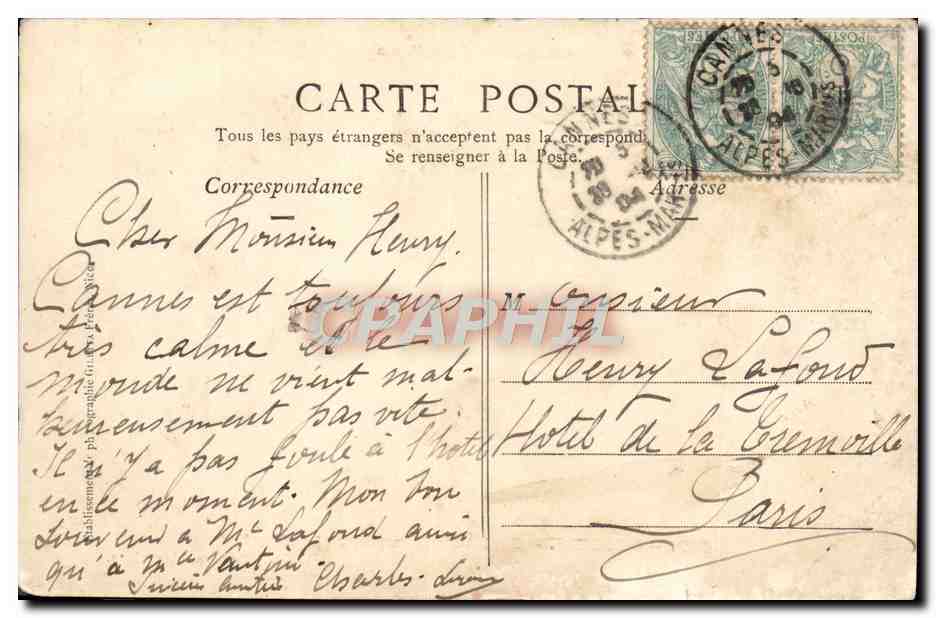 CARTE POSTAL
Tous les pays étrangers n'acceptent pas la correspond
Se renseigner à la Poste.
Correspondance
Adresse
CANNES
ALPES-MARMES
CANNES
5
04
ALPES-MAR
Cher Monsieur Henry.
Cannes est toujours
très calme et le
monde ne vient mal-
heureusement pas vite.
Il n'y a pas foule à l'hotel
en ce moment. Mon bon
souvenir à Mr Lafond ainsi
qu'à Mce
Charles
Monsieur
Henry Lafond
Hotel de la Tremville
Paris
Etablissements photographie GILLETTA Frères Nice
CPAPHIL